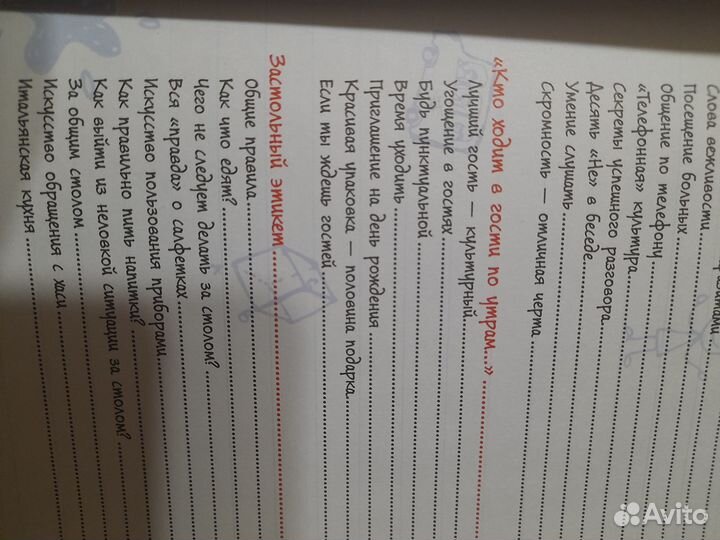 Слова вежливости
Посещение больных
Общение по телефону
«Телефонная» культура
Секреты успешного разговора
Десять «Не» в беседе
Умение слушать
Скромность — отличная черта
«Кто ходит в гости по утрам...»
Лучший гость — культурный
Угощение в гостях
Будь пунктуальной
Время уходить
Приглашение на день рождения
Красивая упаковка — половина подарка
Если ты ждешь гостей
Застольный этикет
Общие правила
Как что едят?
Чего не следует делать за столом?
Вся «правда» о салфетках
Искусство пользования приборами
Как правильно пить напитки?
Как выйти из неловкой ситуации за столом?
За общим столом
Искусство обращения с хаси
Итальянская кухня
Avito